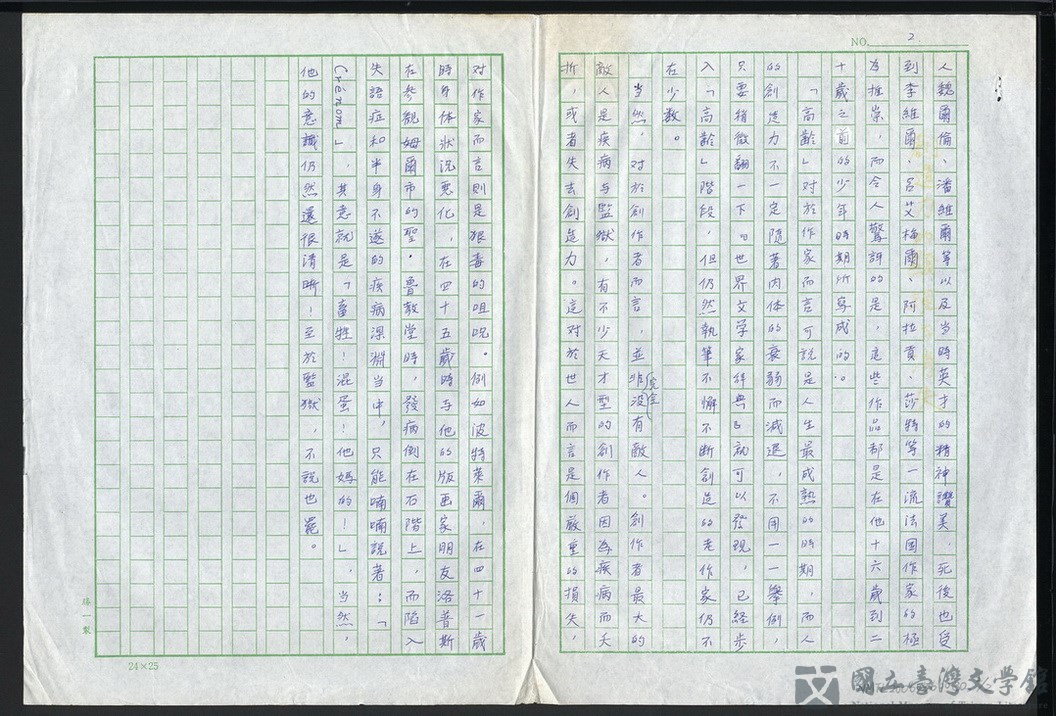 NO. 2
人魏爾倫、潘維爾等以及当時英才的精神讚美，死後也受
到李維爾、呂艾梅爾、阿拉貢、莎特等一流法国作家的極
為推崇，而令人驚訝的是，這些作品都是在他十六歲到二
十歲之前的少年時期所寫成的。
「高齡」对於作家而言可說是人生最成熟的時期，而人
的創造力不一定隨著肉体的衰弱而減退，不用一一舉例，
只要稍微翻一下『世界文学家辞典』就可以發現，已経步
入「高齡」階段，但仍然執筆不懈不断創造的老作家仍不
在少数。
当然，对於創作者而言，並非完全没有敵人。創作者最大的
敵人是疾病与監獄，有不少天才型的創作者因為疾病而夭
折，或者失去創造力。這对於世人而言是個嚴重的損失，
对作家而言則是狠毒的咀呪。例如波特萊爾，在四十一歲
時身体狀況悪化，在四十五歲時与他的版画家朋友洛普斯
在參観姆爾市的聖・魯教堂時，發病倒在石階上，而陷入
失語症和半身不遂的疾病深淵当中，只能喃喃說著：「
Crénom」，其意就是「畜牲！混蛋！他媽的！」，当然，
他的意識仍然還很清晰！至於監獄，不說也罷。
24×25
國立臺灣文學館